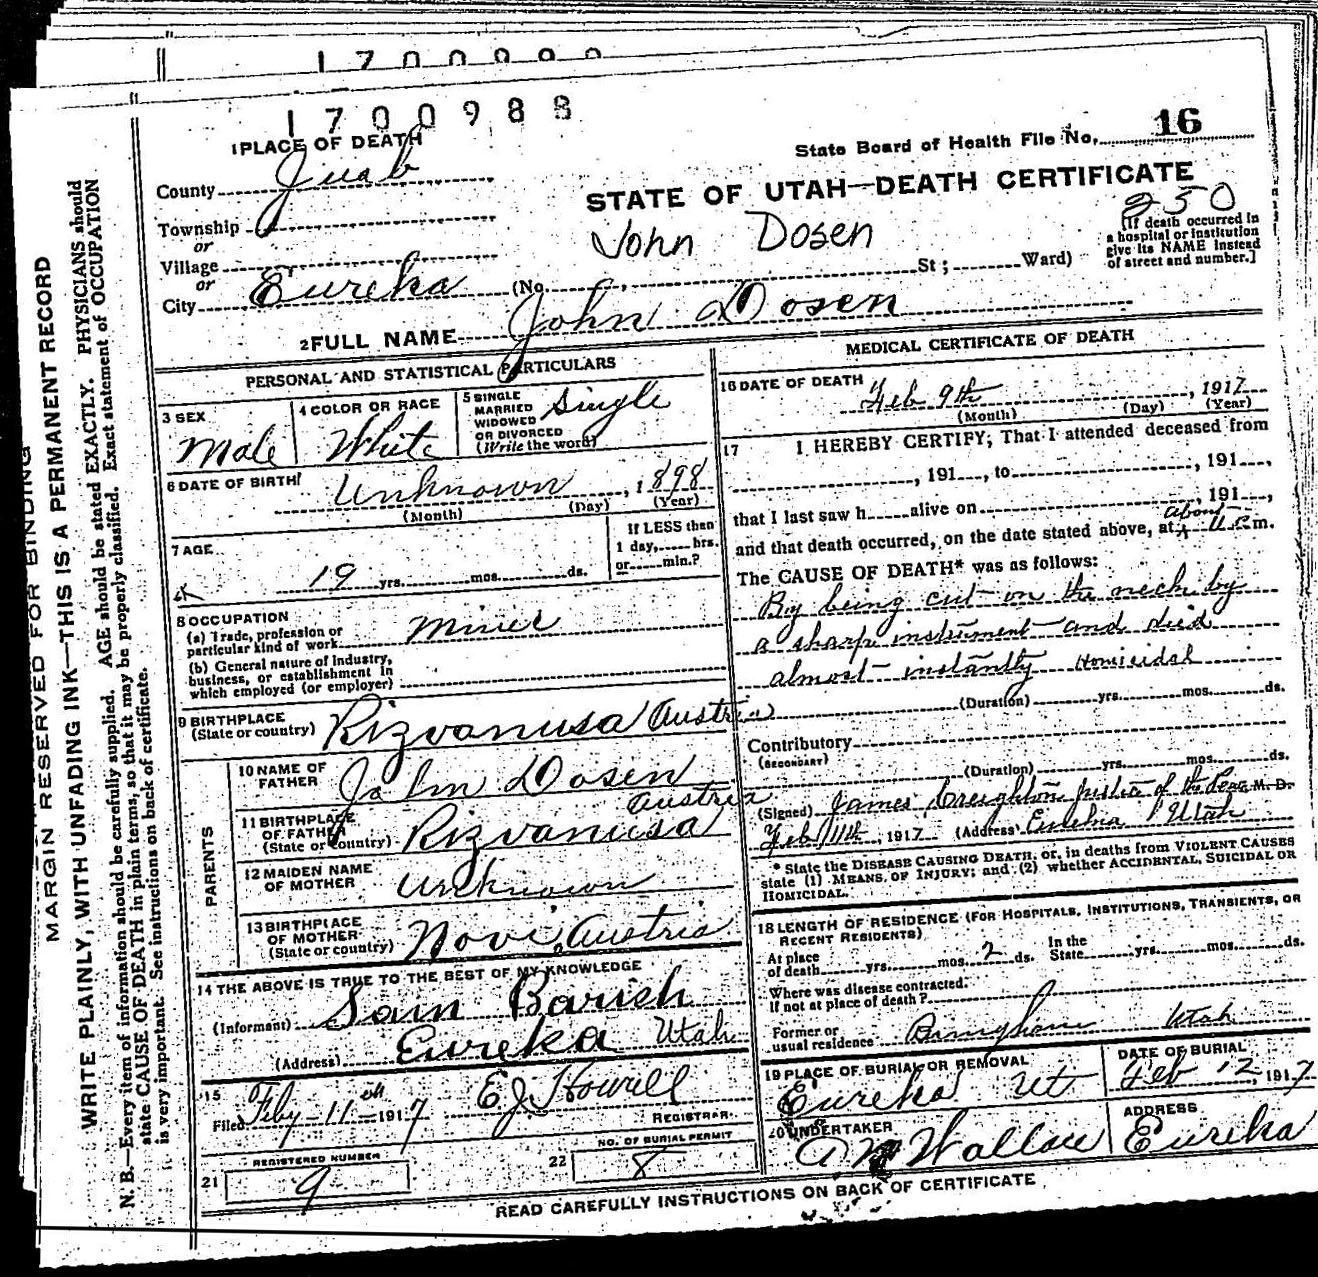 1700990
1700988
1 PLACE OF DEATH
State Board of Health File No. 16
County Juab
STATE OF UTAH—DEATH CERTIFICATE
250
Township
or
Village
or
City Eureka
John Dosen
(No. St; Ward)
[If death occurred in
a hospital or institution
give its NAME instead
of street and number.]
2 FULL NAME John Dosen
PERSONAL AND STATISTICAL PARTICULARS
3 SEX
Male
4 COLOR OR RACE
White
5 SINGLE
MARRIED
WIDOWED
OR DIVORCED
(Write the word)
Single
6 DATE OF BIRTH
Unknown, 1898
(Month) (Day) (Year)
7 AGE
19 yrs. mos. ds.
If LESS than
1 day, hrs.
or min.?
8 OCCUPATION
(a) Trade, profession or
particular kind of work Miner
(b) General nature of industry,
business, or establishment in
which employed (or employer)
9 BIRTHPLACE
(State or country) Rizvanusa Austria
PARENTS
10 NAME OF
FATHER John Dosen
11 BIRTHPLACE
OF FATHER
(State or country) Rizvanusa Austria
12 MAIDEN NAME
OF MOTHER Unknown
13 BIRTHPLACE
OF MOTHER
(State or country) Novi, Austria
14 THE ABOVE IS TRUE TO THE BEST OF MY KNOWLEDGE
(Informant) Sam Barich
(Address) Eureka Utah
15
Filed Feby-11th-1917 E J Howell
REGISTRAR.
REGISTERED NUMBER
21 9
NO. OF BURIAL PERMIT
22 8
MEDICAL CERTIFICATE OF DEATH
16 DATE OF DEATH
Feb 9th, 1917
(Month) (Day) (Year)
17 I HEREBY CERTIFY, That I attended deceased from
, 191 , to , 191 ,
that I last saw h alive on , 191 ,
and that death occurred, on the date stated above, at about 11 P.m.
The CAUSE OF DEATH* was as follows:
By being cut on the neck by
a sharp instrument and died
almost instantly Homicidal
(Duration) yrs. mos. ds.
Contributory
(SECONDARY)
(Duration) yrs. mos. ds.
(Signed) James Creighton Justice of the Peace M. D.
Feb 11th, 1917 (Address) Eureka Utah
* State the DISEASE CAUSING DEATH, or, in deaths from VIOLENT CAUSES
state (1) MEANS OF INJURY; and (2) whether ACCIDENTAL, SUICIDAL OR
HOMICIDAL.
18 LENGTH OF RESIDENCE (FOR HOSPITALS, INSTITUTIONS, TRANSIENTS, OR
RECENT RESIDENTS)
At place
of death yrs. mos. 2 ds. In the
State yrs. mos. ds.
Where was disease contracted.
If not at place of death?
Former or
usual residence Bingham Utah
19 PLACE OF BURIAL OR REMOVAL
Eureka Ut
DATE OF BURIAL
Feb 12, 1917
20 UNDERTAKER
Wallace
ADDRESS
Eureka
READ CAREFULLY INSTRUCTIONS ON BACK OF CERTIFICATE
MARGIN RESERVED FOR BINDING
WRITE PLAINLY, WITH UNFADING INK—THIS IS A PERMANENT RECORD
N. B.—Every item of information should be carefully supplied. AGE should be stated EXACTLY. PHYSICIANS should
state CAUSE OF DEATH in plain terms, so that it may be properly classified. Exact statement of OCCUPATION
is very important. See instructions on back of certificate.